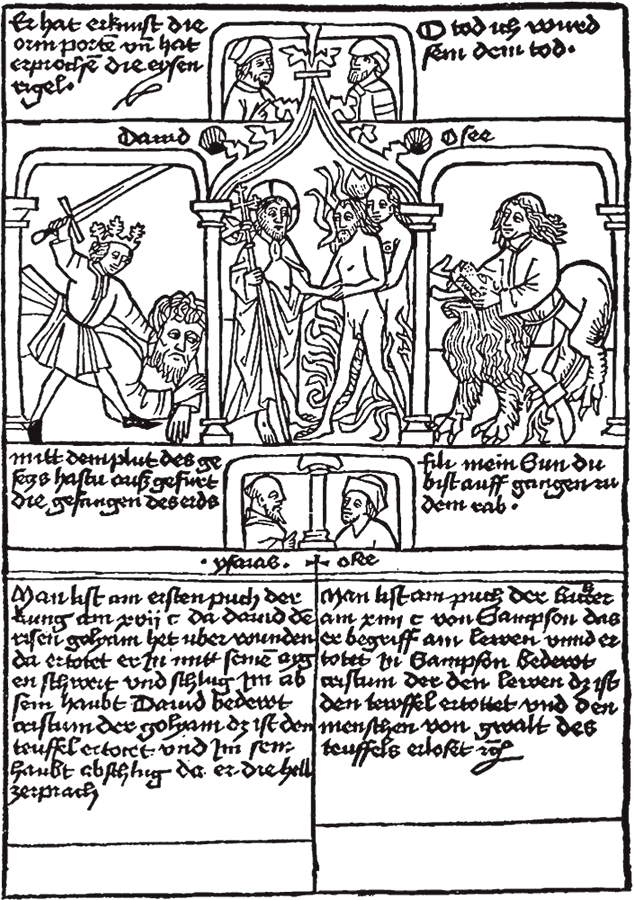 Er hat erknust die
orin porten vn̄ hat
erproche͂ die eysen
rigel.
O tod ich wurd
sein dem tod.
Dauid
Osee
mitt dem plut des ge
secz hastu auß gefurt
die gefangen des erds
fili mein Sun du
bist auff gangen zu
dem rab.
ysaias.
osee
Man list am ersten puch der
kung am xvij c da dauid de͂
risen golyam het uber wunden
da ertotet er In mitt seine͂ aig
en schwert vnd schlug Im ab
sein haubt Dauid bedewt
cristum der golyam dz ist den
teuffel ertotet vnd Im sein
haubt abschlug da er die hell
zerprach
Man list am puch der
am xiiii c von Sampson das
er begriff am lewen vnnd er
totet In Sampson bedewt
cristum der den lewen dz ist
den tewffel ertottet vnd den
menschen von gwalt des
teuffels erloset